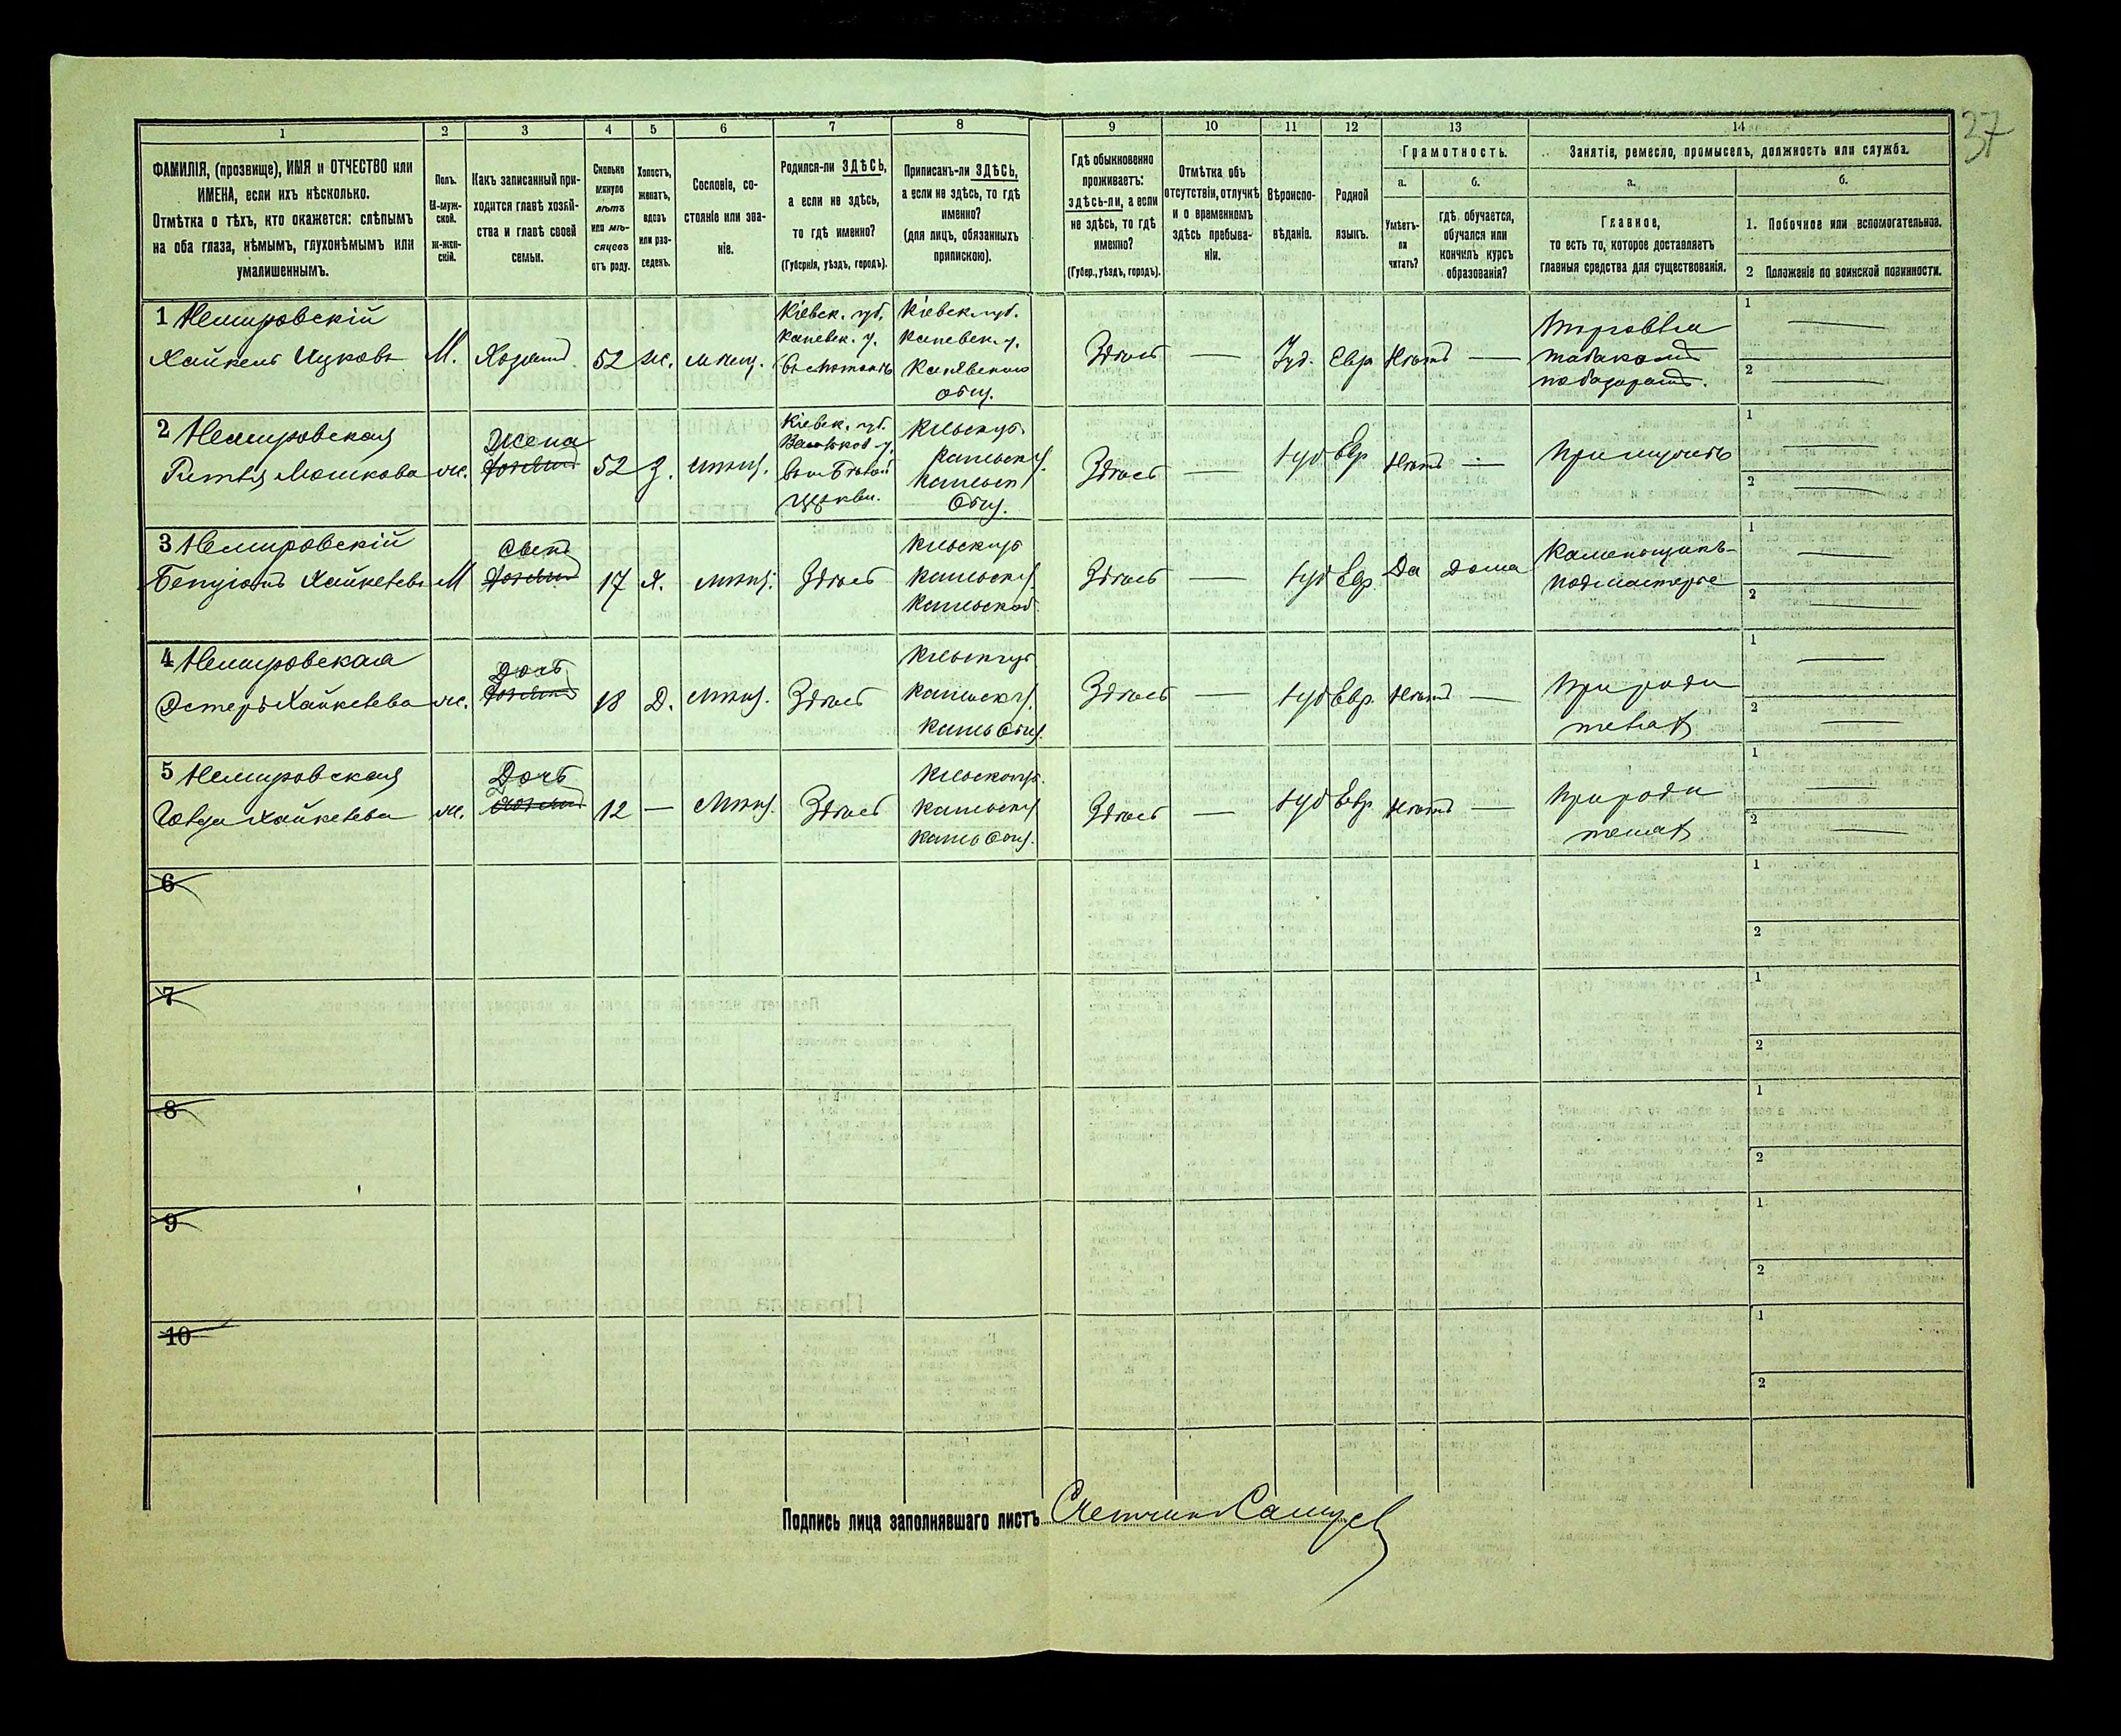 37
1 2 3 4 5 6 7 8 9 10 11 12 13 14
ФАМИЛІЯ, (прозвище), ИМЯ и ОТЧЕСТВО или
ИМЕНА, если ихъ нѣсколько.
Отмѣтка о тѣхъ, кто окажется: слѣпымъ
на оба глаза, нѣмымъ, глухонѣмымъ или
умалишеннымъ.
Полъ.
М-муж-
ской.
ж-жен-
скій.
Какъ записанный при-
ходится главѣ хозяй-
ства и главѣ своей
семьи.
Сколько
минуло
лѣтъ
или мѣ-
сяцевъ
отъ роду.
Холостъ,
женатъ,
вдовъ
или раз-
веденъ.
Сословіе, со-
стояніе или зва-
ніе.
Родился-ли ЗДѢСЬ,
а если не здѣсь,
то гдѣ именно?
(Губернія, уѣздъ, городъ).
Приписанъ-ли ЗДѢСЬ,
а если не здѣсь, то гдѣ
именно?
(для лицъ, обязанныхъ
припискою).
Гдѣ обыкновенно
проживаетъ:
здѣсь-ли, а если
не здѣсь, то гдѣ
именно?
(Губер., уѣздъ, городъ).
Отмѣтка объ
отсутствіи, отлучкѣ
и о временномъ
здѣсь пребыва-
ніи.
Вѣроиспо-
вѣданіе.
Родной
языкъ.
Грамотность.
а.
Умѣетъ-
ли
читать?
б.
гдѣ обучается,
обучался или
кончилъ курсъ
образованія?
Занятіе, ремесло, промыселъ, должность или служба.
а.
Главное,
то есть то, которое доставляетъ
главныя средства для существованія.
б.
1. Побочное или вспомогательное.
2 Положеніе по воинской повинности.
1 Немировскій
Хайкель Ицковъ
М.
Хозяинъ
52
же.
мѣщ.
Кіевск. губ.
Каневск. у.
Кіевск. губ.
Каневск. у.
Каневского
общ.
Здѣсь
—
Іуд.
Евр
Нѣтъ
—
Торговля
табакомъ
по базарамъ.
1 —
2 —
2 Немировская
Мошкова
же.
Жена
52
З.
мѣщ.
Кіевск. губ.
Васильков. у.
Церкви.
Общ.
Здѣсь
—
Іуд
Евр
Нѣтъ
—
При мужѣ
1 —
2 —
3 Немировскій
Хайкелевъ
М
Сынъ
17
Х.
мѣщ.
Здѣсь
Здѣсь
—
Іуд
Евр.
Да
дома
Каменьщикъ-
подмастерье
1 —
2 —
4 Немировская
Эстеръ Хайкелева
же.
Дочь
18
Д.
мѣщ.
Здѣсь
Здѣсь
—
Іуд
Евр.
Нѣтъ
—
При роди
теляхъ
1 —
2 —
5 Немировская
Хайкелева
же.
Дочь
12
—
мѣщ.
Здѣсь
Здѣсь
—
Іуд
Евр.
Нѣтъ
—
При роди
теляхъ
1 —
2 —
6
1
2
7
1
2
8
1
2
9
1
2
10
1
2
Подпись лица заполнявшаго листъ Счетчикъ